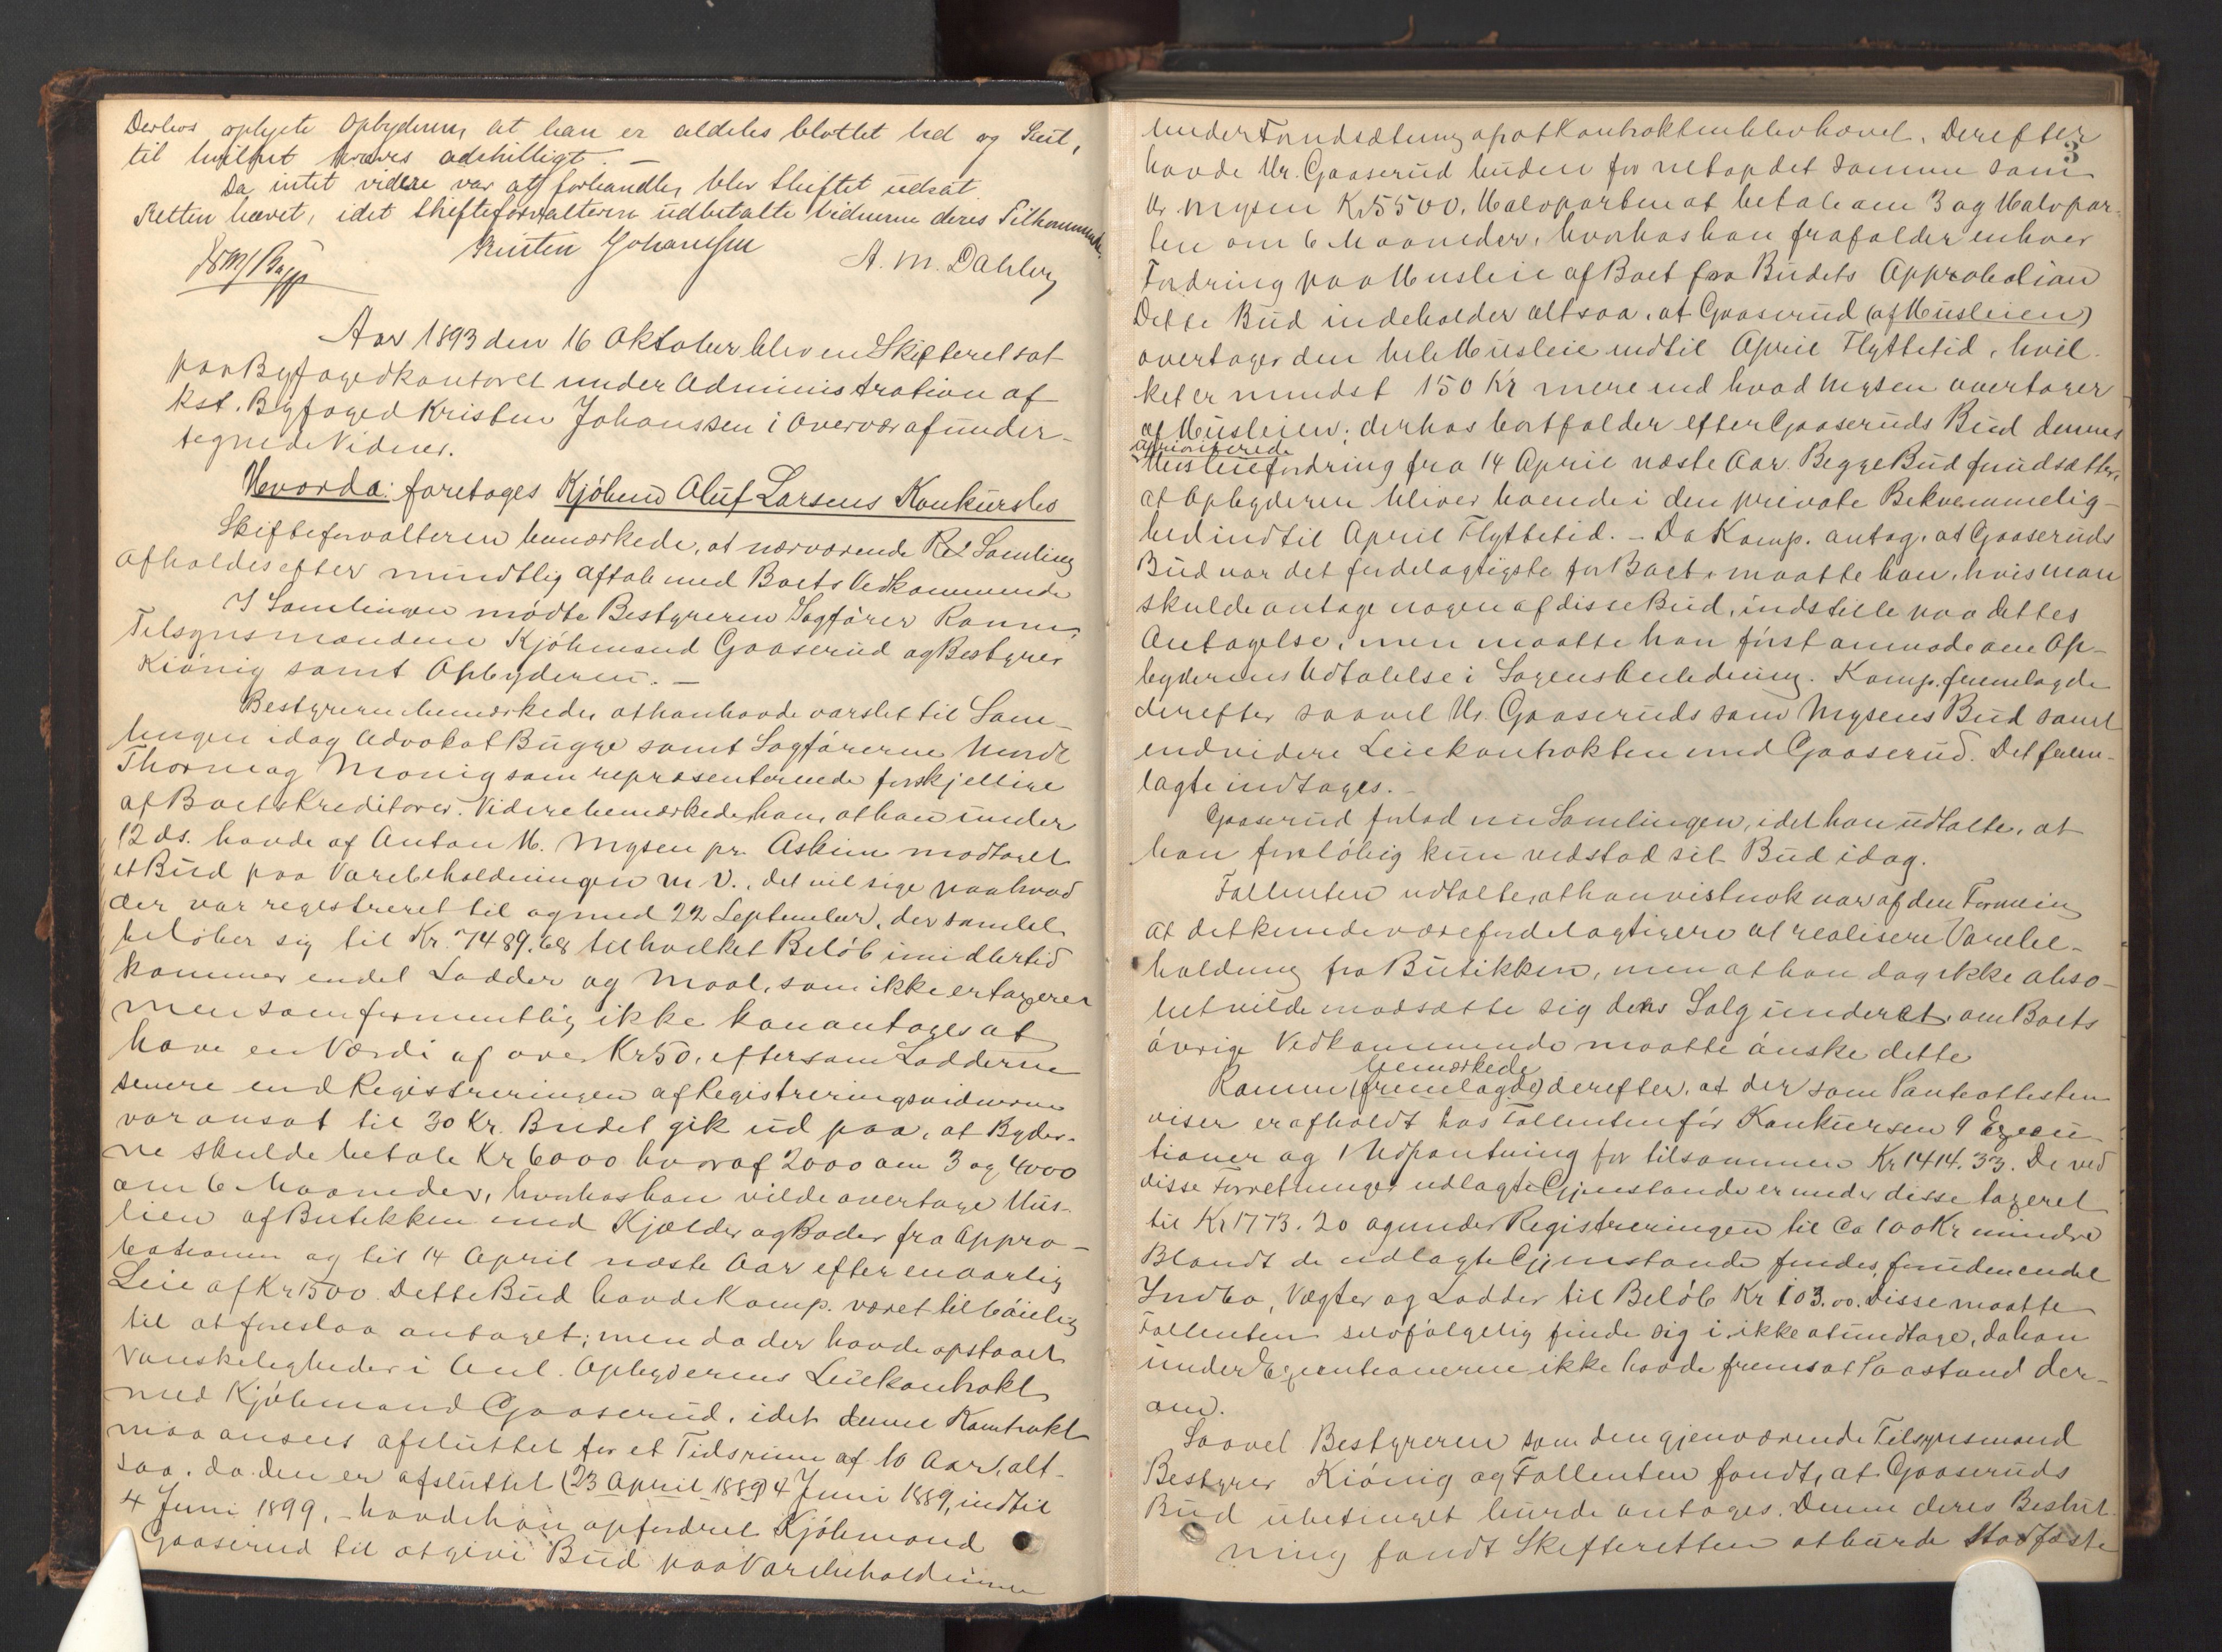 Derhos oplyste Opbyderen, at han er aldeles blottet ved og Sent,
til hvilket kræves adskilligt. —
Da intet videre var at forhandle, blev Skiftet udsat.
Retten hævet, idet Skifteforvalteren udbetalte Vidnerne deres Tilkommende.
Kristen Johanssen
A. M. Dahler
Aar 1893 den 16 Oktober blev en Skifteret sat
paa Byfogedkontoret under Administration af
kst. Byfoged Kristen Johanssen i Overvær af under-
tegnede Vidner.
Hvorda: foretages Kjøbmd Oluf Larsens Konkursbo
Skifteforvalteren bemærkede, at nærværende Ret Samling
afholdes efter mundtlig Aftale med Boets Vedkommende
I Samlingen mødte Bestyreren Sagfører Ramm,
Tilsynsmændene Kjøbmand Gaaserud og Bestyrer
Kiønig samt Opbyderen. —
Bestyreren bemærkede, at han havde varslet til Sam-
lingen idag Advokat Bugge samt Sagførerne
Thorne og Monig som repræsenterende forskjellige
af Boets Kreditorer. Videre bemærkede han, at han under
12 ds. havde af Anton H. Mysen pr. Askim modtaget
et Bud paa Varebeholdningen m. v., det vil sige paa hvad
der var registreret til og med 22 September, der samlet
beløber sig til Kr. 7489.68 til hvilket Beløb imidlertid
kommer endel Lodder og Maal, som ikke er taxeret
men som formentlig ikke kan antages at
have en Værdi af over Kr 50, eftersom Lodderne
senere end Registreringen af Registreringsvidnerne
var ansat til 30 Kr. Budet gik ud paa, at Byder-
ne skulde betale Kr 6000 hvoraf 2000 om 3 og 4000
om 6 Maaneder, hvorhos han vilde overtage Hus-
leien af Butikken med Kjælder og Boder fra Appro-
bationen og til 14 April næste Aar efter en aarlig
Leie af Kr 1500. Dette Bud havde Komp. været tilbøielig
til at foreslaa antaget; men da der havde opstaaet
Vanskeligheder i Anl. Opbyderens Leiekontrakt
med Kjøbmand Gaaserud, idet denne Kontrakt
maa ansees afsluttet for et Tidsrum af 10 Aar, alt-
saa, da den er afsluttet (23 April 1889) 4 Juni 1889, indtil
4 Juni 1899, – havde han opfordret Kjøbmand
Gaaserud til at give Bud paa Varebeholdningen
3
under Forudsætning af at Kontrakten blev hævet. Derefter
havde Hr. Gaaserud buden for netop det samme som
Hr. Mysen Kr 5500. Halvparten at betale om 3 og Halvpar-
ten om 6 Maaneder, hvorhos han frafalder enhver
Fordring paa Husleie af Boet fra Budets Approbation
Dette Bud indeholder altsaa, at Gaaserud (af Husleien)
overtager den hele Husleie indtil April Flyttetid, hvil-
ket er mindst 150 Kr mere end hvad Mysen overtager
af Husleien; derhos bortfalder efter Gaaseruds Bud dennes
uprioriterede
Husleiefordring fra 14 April næste Aar. Begge Bud forudsætter,
at Opbyderen bliver boende i den private Bekvemmelig-
hed indtil April Flyttetid. – Da Komp. antog, at Gaaseruds
Bud var det fordelagtigste for Boet, maatte han, hvis man
skulde antage nogen af disse Bud, indstille paa dettes
Antagelse, men maatte han først anmode om Op-
byderens Udtalelse i Sagens Anledning. Komp. fremlagde
derefter saavel Hr. Gaaseruds som Mysens Bud samt
endvidere Leiekontrakten med Gaaserud. Det frem-
lagte indtages. –
Gaaserud forlod nu Samlingen, idet han udtalte, at
han foreløbig kun vedstod sit Bud idag.
Fallenten udtalte, at han vistnok var af den Formening
at det kunde være fordelagtigere at realisere Varebe-
holdning fra Butikken, men at han dog ikke abso-
lut vilde modsætte sig dens Salg underet, om Boets
øvrige Vedkommende maatte ønske dette
bemærkede
Ramm (fremlagde) derefter, at der som Panteattesten
viser er afholdt hos Fallenten før Konkursen 9 Execu-
tioner og 1 Udpantning for tilsammen Kr 1414.33. De ved
disse Forretninger udlagte Gjenstande er under disse taxeret
til Kr 1773.20 og under Registreringen til Ca 100 Kr mindre
Blandt de udlagte Gjenstande findes foruden endel
Indbo, Vægter og Lodder til Beløb Kr 103.00. Disse maatte
Fallenten selvfølgelig finde sig i ikke at undtage, da han
under Executionerne ikke havde fremsat Paastand der-
om.
Saavel Bestyreren som den gjenværende Tilsynsmand
Bestyrer Kiønig og Fallenten fandt, at Gaaseruds
Bud ubetinget burde antages. Denne deres Beslut-
ning fandt Skifteretten at burde stadfæste